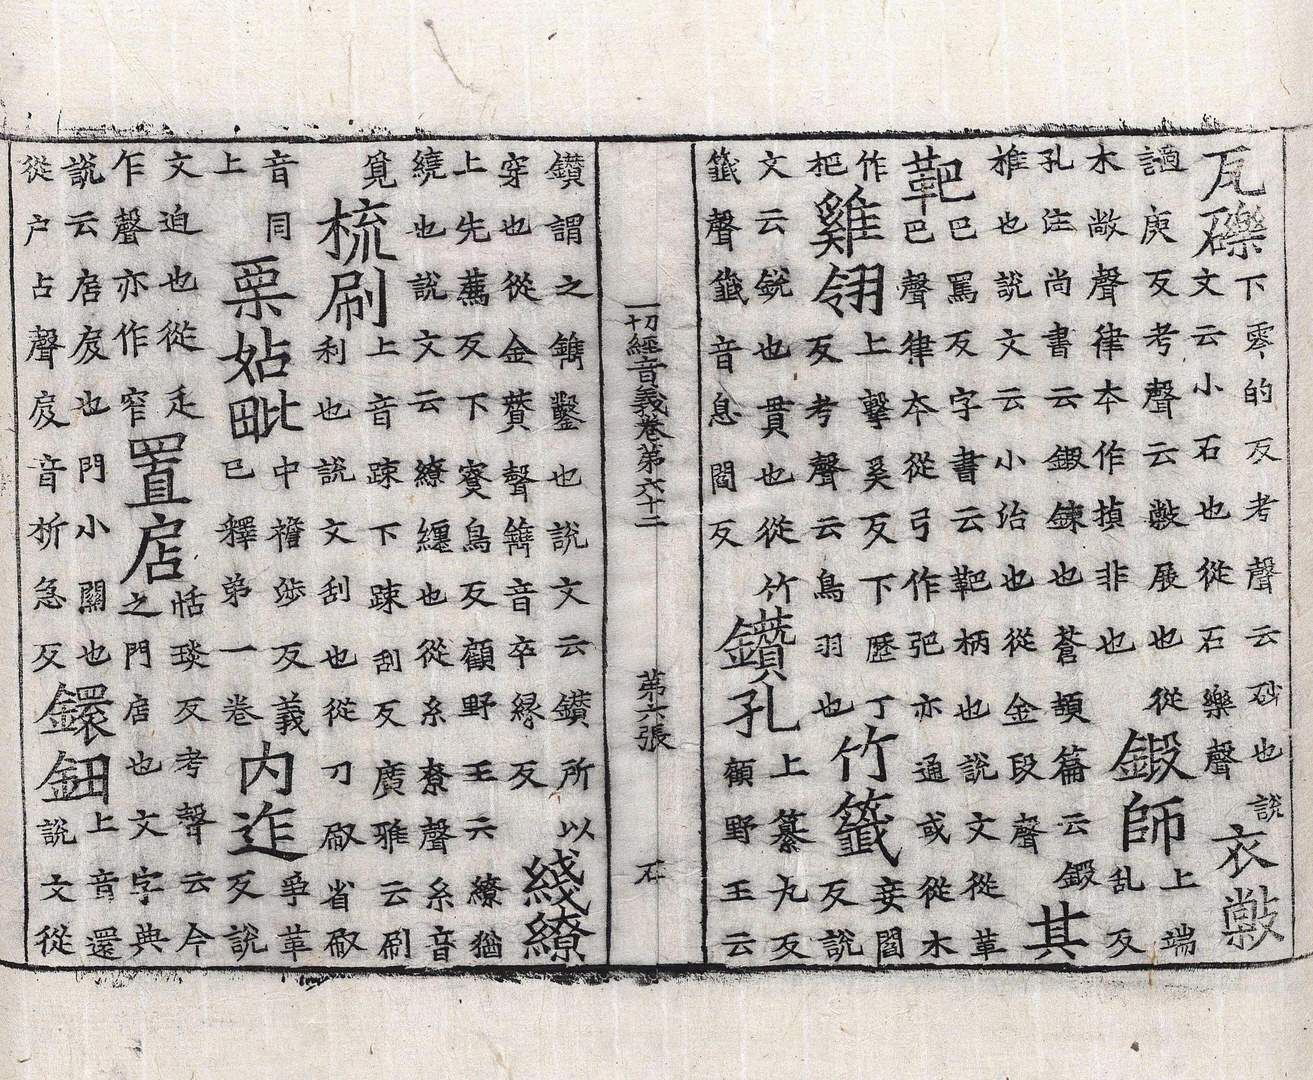 瓦礫下零的反考聲云砂也說文云小石也從石樂聲衣敝
適庾反考聲云敝屐也從木敞聲律本作揁非也鍛師上端乱反
孔注尚書云鍛鍊也蒼頡篇云鍛椎也說文云小冶也從金段聲其
靶巴罵反字書云靶柄也說文從革巴聲律本從弓作弝亦通或從木
作把雞翎上擊奚反下歷丁反考聲云鳥羽也竹籤妾閻反說
文云銳也貫也從竹籤聲籤音息閻反鑽孔上纂九反顧野王云
一切經音義卷第六十二 第六張 石
鑽謂之鐫鑿也說文云鑽所以穿也從金贊聲鐫音卒緣反綫繚
上先薦反下寮鳥反顧野王云繚猶繞也說文云繚纏也從糸尞聲糸音
覓梳刷上音踈下踈刮反廣雅云刷利也說文刮也從刀㕞省㕞
音同上栗㚲毗中襜涉反義已釋弟一卷內迮爭革反說
文迫也從辵乍聲亦作窄置店恬琰反考聲云今之門店也文字典
說云店扂也門小關也從戶占聲扂音析急反鐶鈕上音還說文從